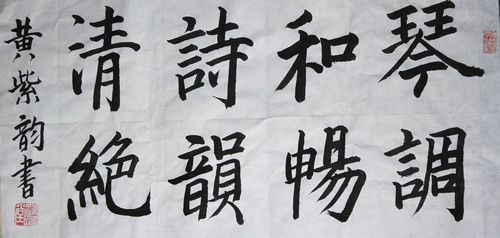 琴調
和暢
詩韻
清絕
黃紫韵書